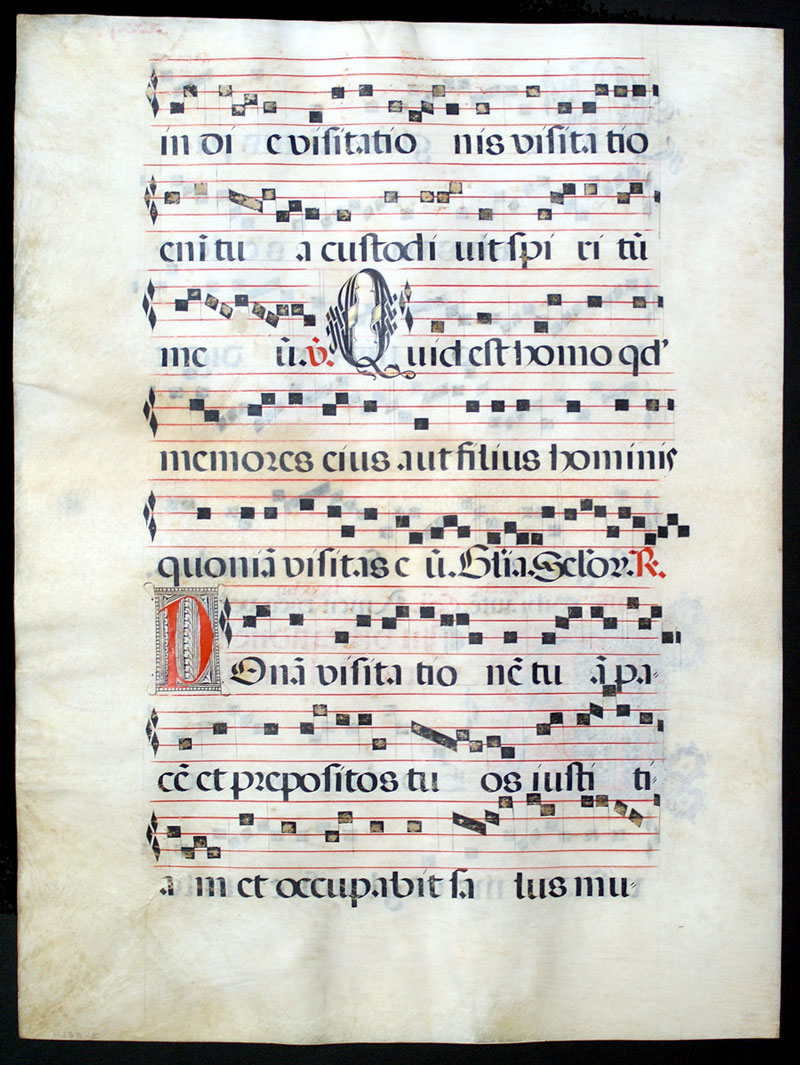 in di e visitatio nis visitatio
enī tu a custodi uit spi ri tū
me ū. ℣. Quid est homo qd'
memores eius aut filius hominis
quoniā visitas e ū. Glia. Seclor. ℟.
Donā visita tio nē tu ā pa-
cē et prepositos tu os iusti ti-
a m et occupabit sa lus mu-